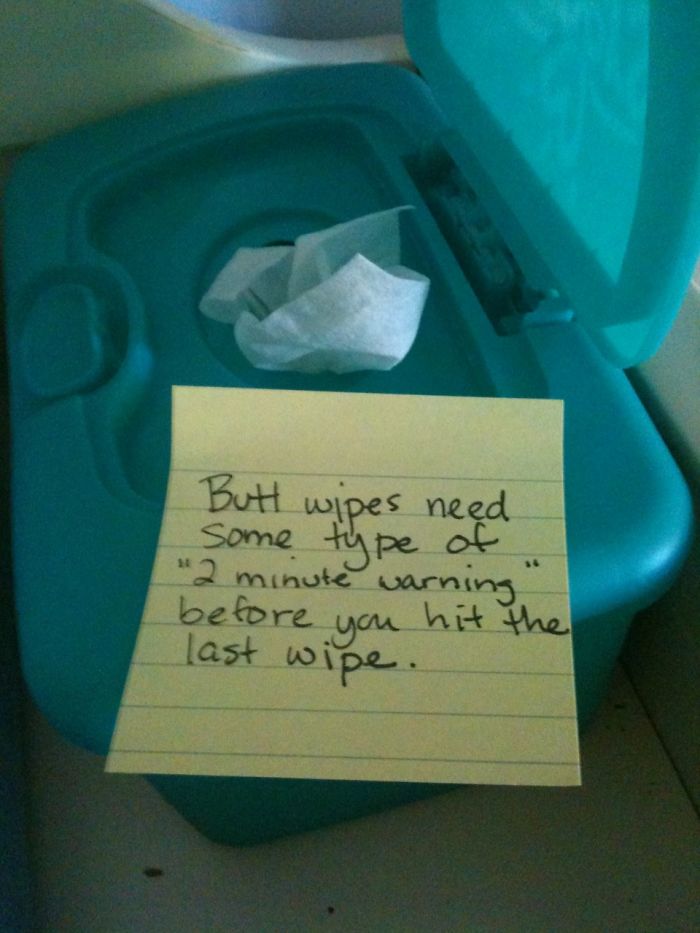 Butt wipes need
some type of
"2 minute warning"
before you hit the
last wipe.